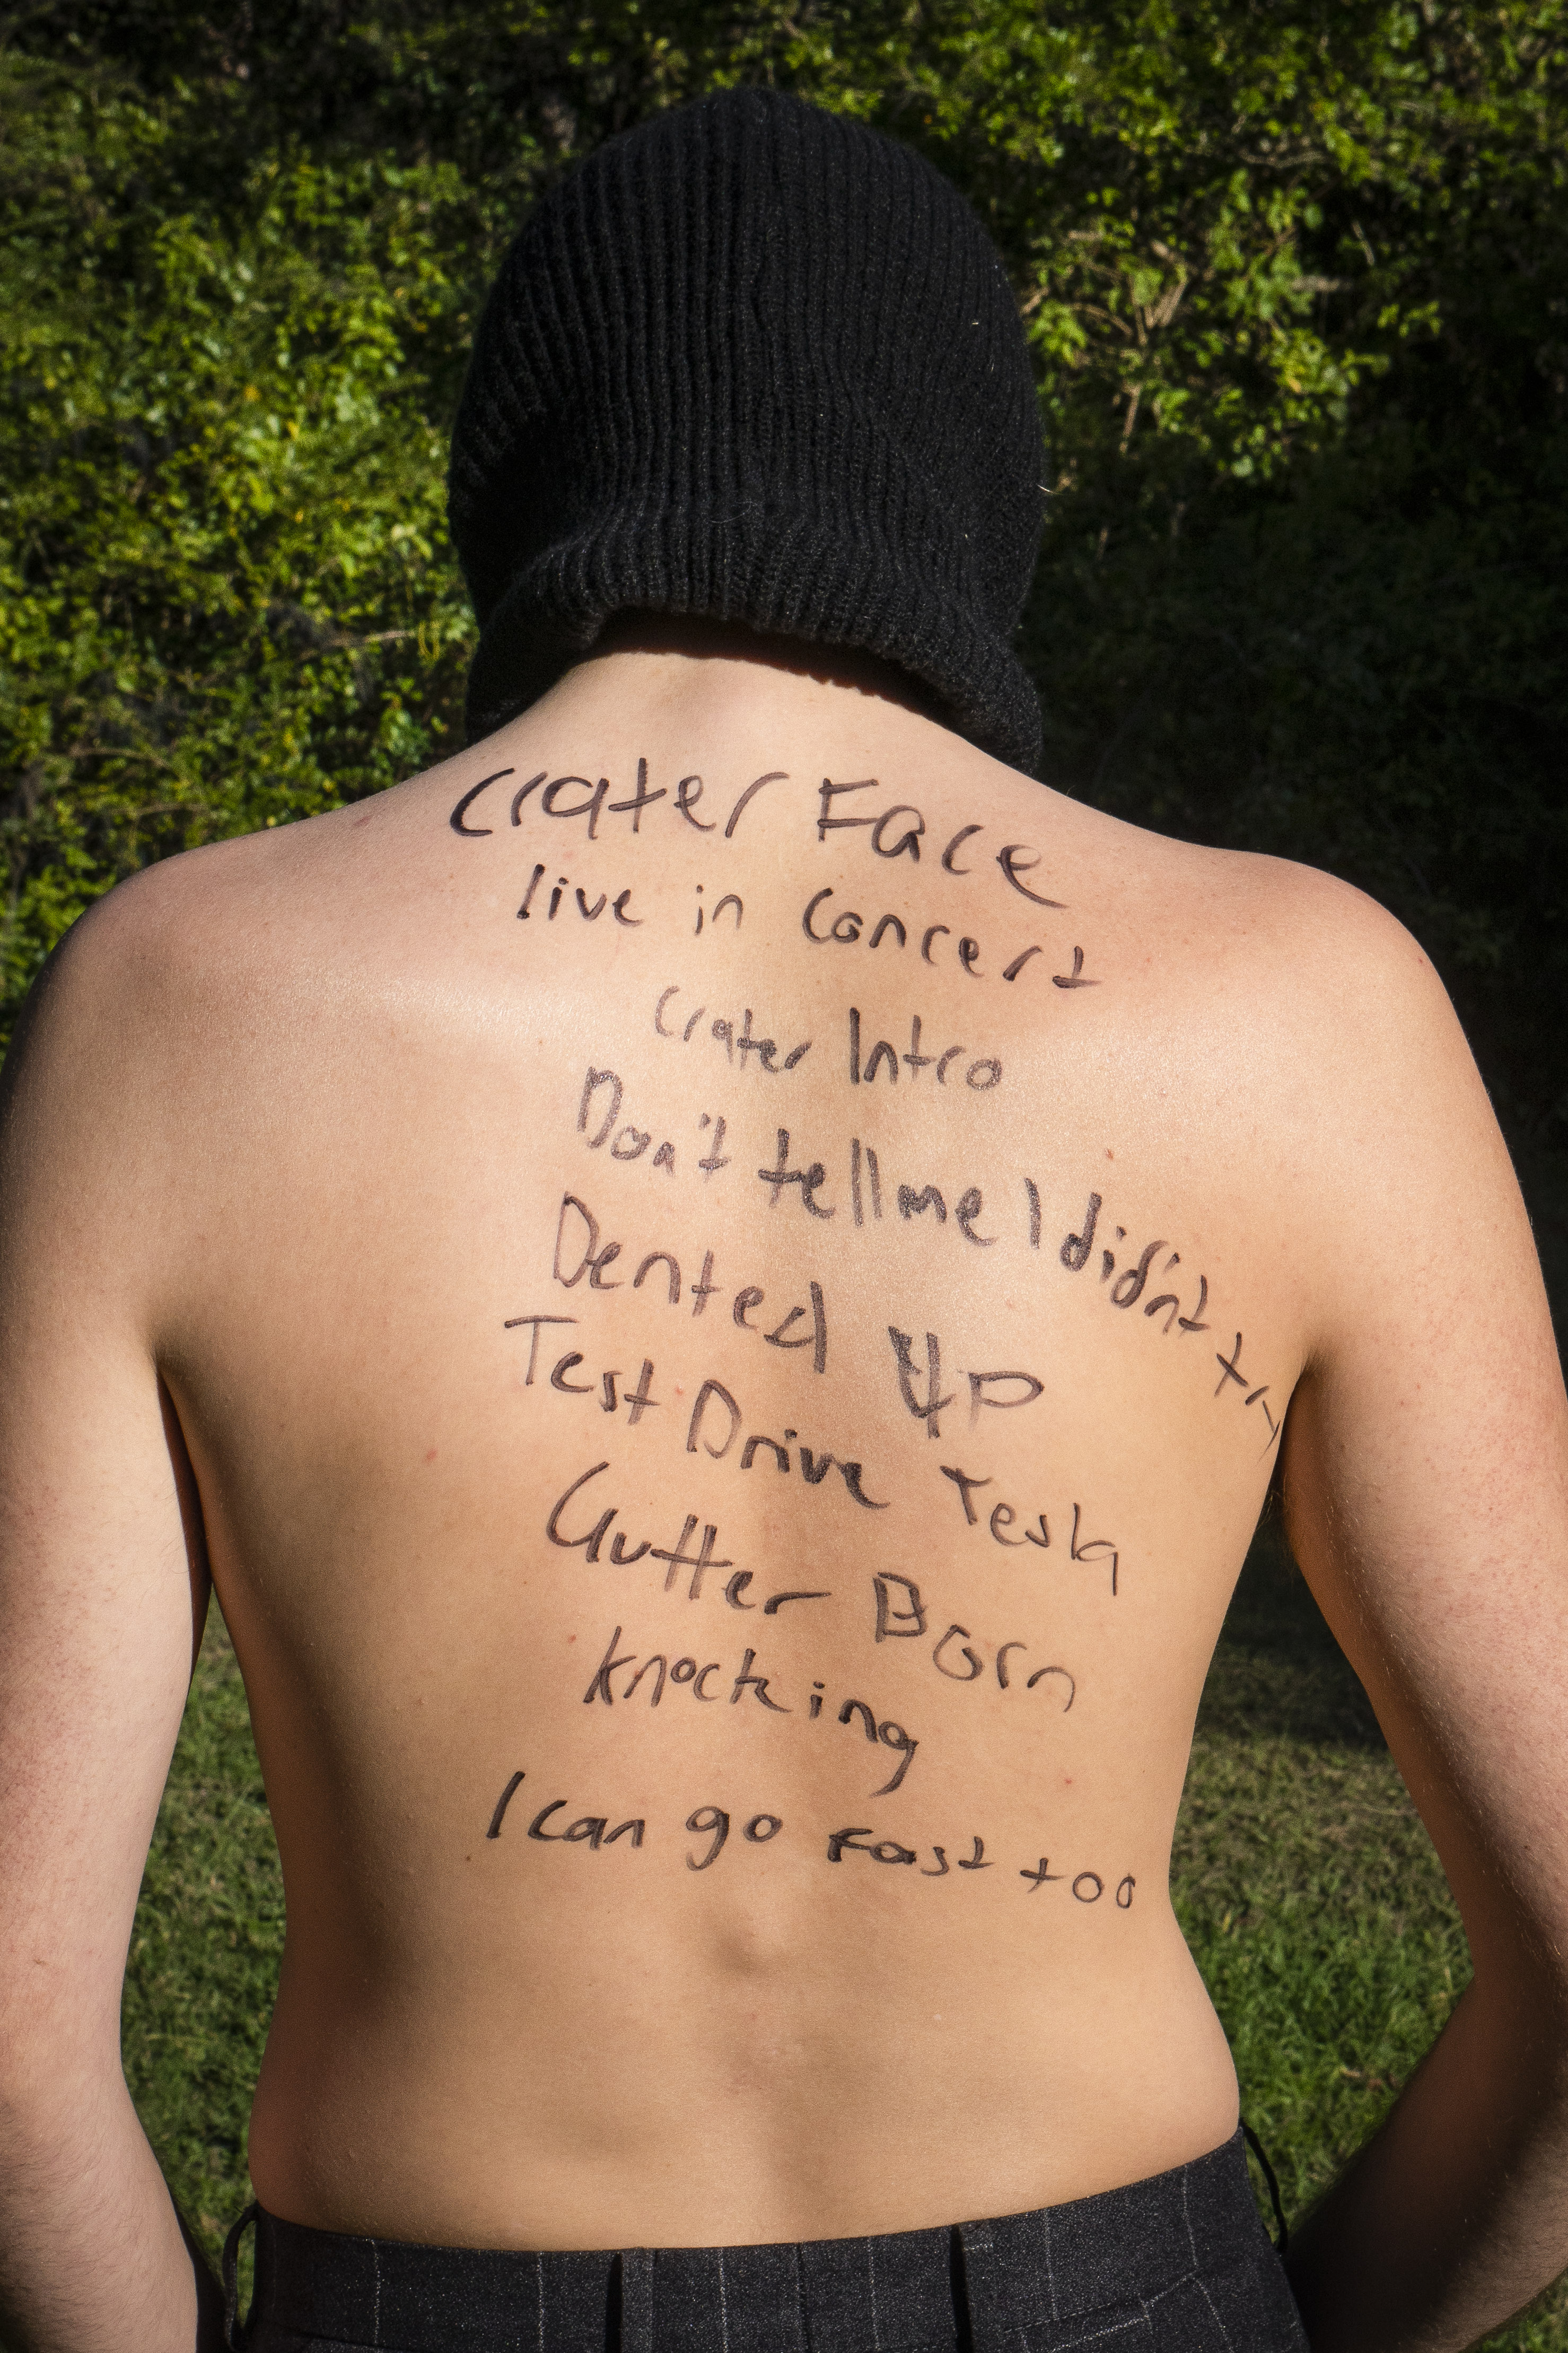 Crater Face
live in Concert
Crater Intro
Don't tell me I didn't try
Dented UP
Test Drive Tesla
Gutter Born
Knocking
I can go Fast too